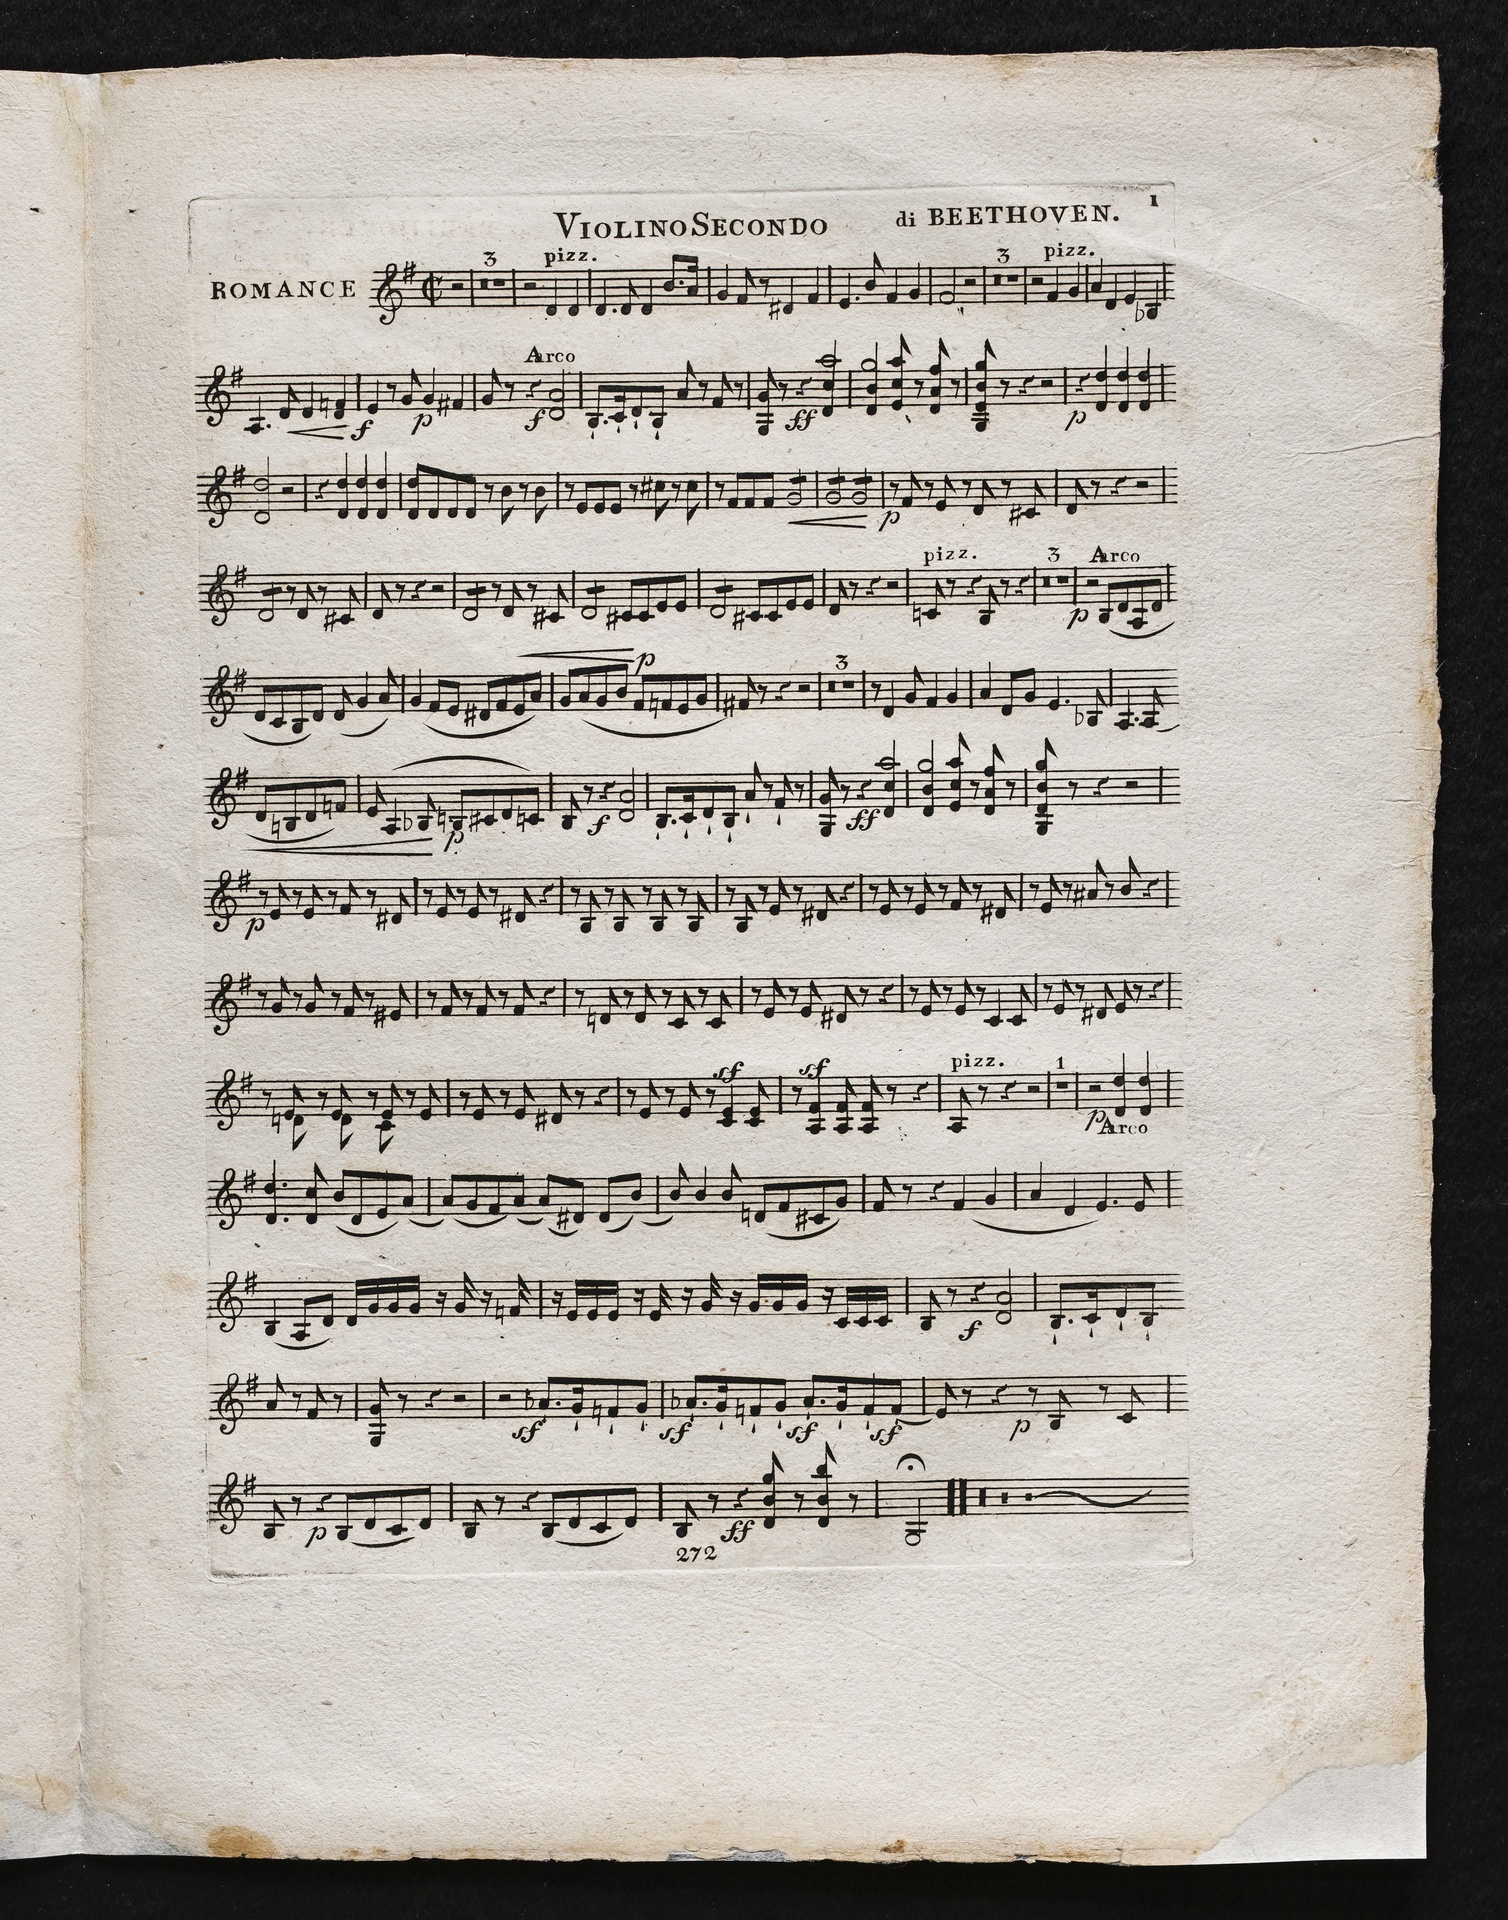 VIOLINO SECONDO di BEETHOVEN. 1
3 pizz. 3 pizz.
ROMANCE
Arco
f p f ff p
p
pizz. 3 Arco
p
p 3
f ff
p
p
sf sf pizz. 1
p Arco
f
sf sf sf sf p
p ff
272